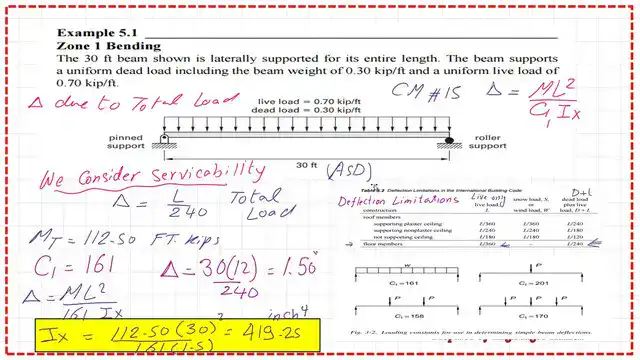 Example 5.1
Zone 1 Bending
The 30 ft beam shown is laterally supported for its entire length. The beam supports
a uniform dead load including the beam weight of 0.30 kip/ft and a uniform live load of
0.70 kip/ft.
Δ due to Total Load
CM #15 Δ = ML² / C₁ Ix
live load = 0.70 kip/ft
dead load = 0.30 kip/ft
pinned support
roller support
30 ft
(ASD)
We Consider Servicability
Δ = L/240 Total Load
MT = 112.50 FT. kips
C₁ = 161
Δ = 30(12)/240 = 1.50"
Δ = ML²/161 Ix
inch⁴
Ix = 112.50(30)²/161(1.5) = 419.25
Deflection Limitations in the International Building Code
Deflection Limitations
Live only
D+L
construction
live load, L
snow load, S, or wind load, W
dead load plus live load, D + L
roof members
supporting plaster ceiling L/360 L/360 L/240
supporting nonplaster ceiling L/240 L/240 L/180
not supporting ceiling L/180 L/180 L/120
floor members L/360 – L/240
w
P
C₁ =161
C₁ = 201
P P
P P P
C₁ =158
C₁ =170
Fig. 3-2. Loading constants for use in determining simple beam deflections.